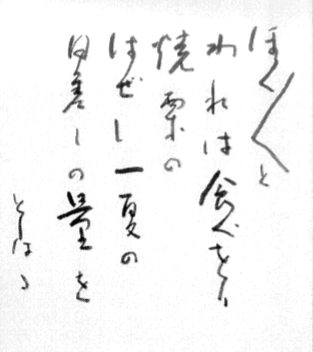 ほく〱と
われは食べをり
焼栗の
はぜし一夏の
日差しの量を
とほる